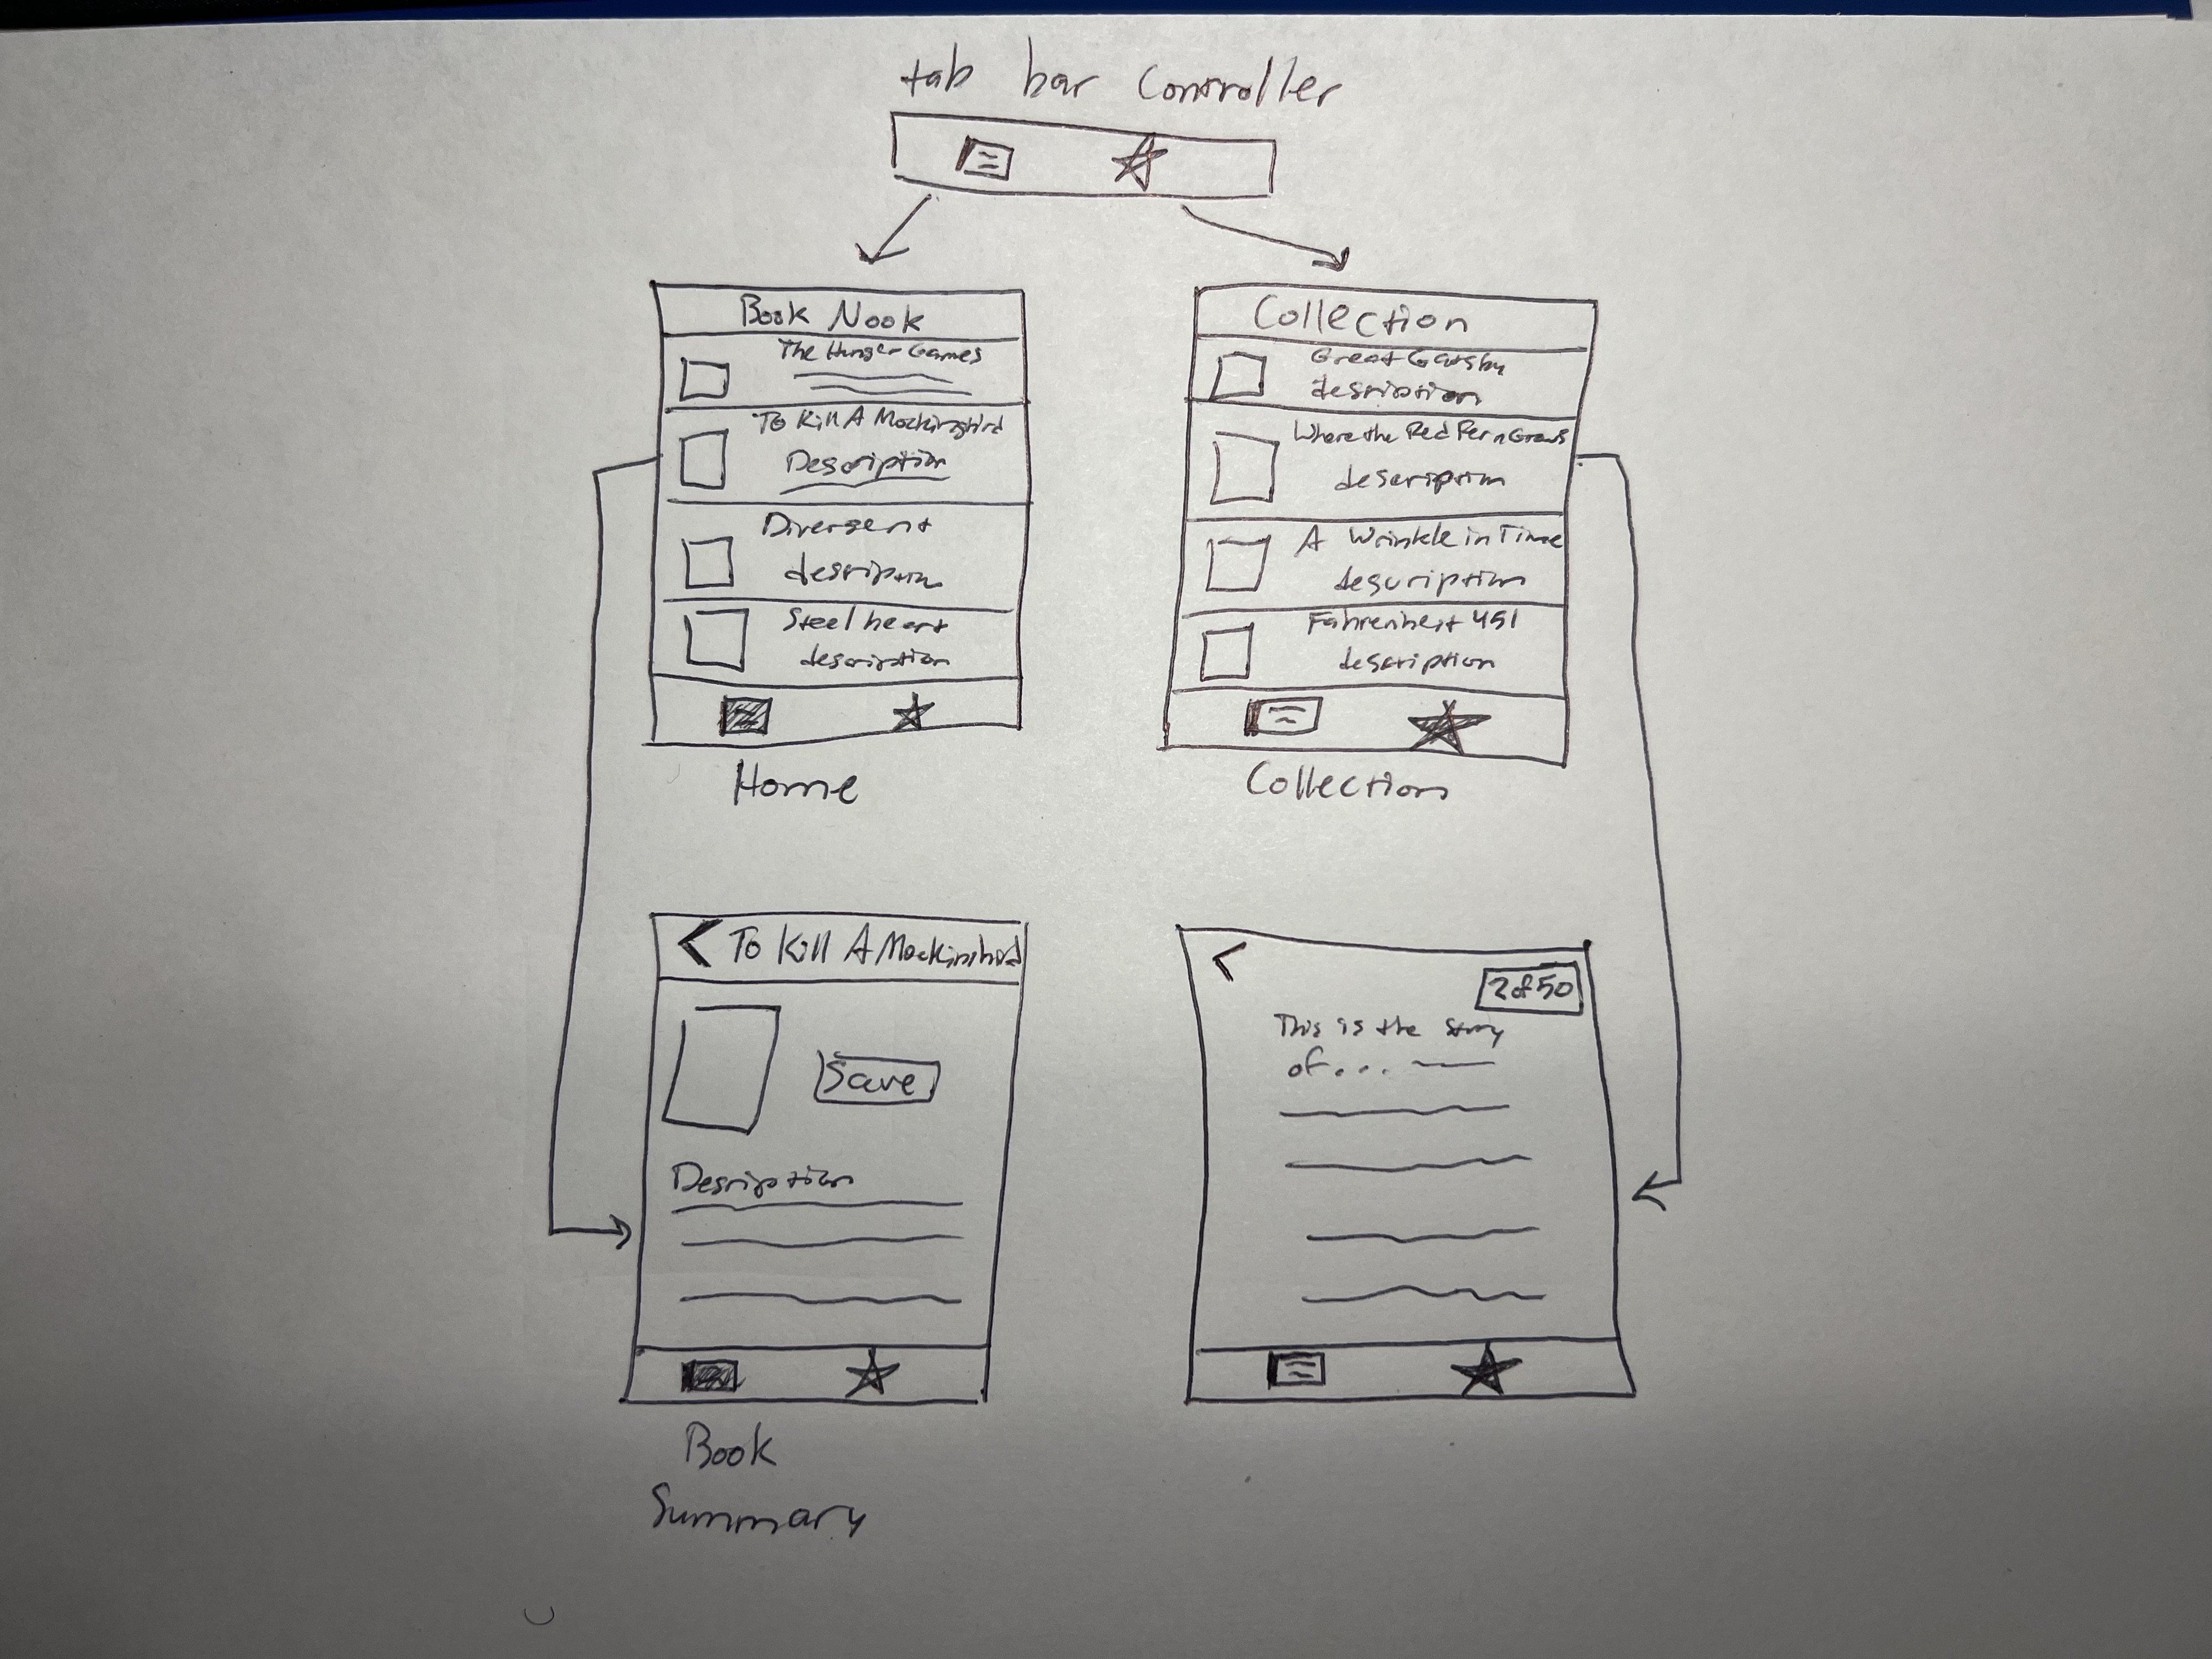 tab bar controller
Book Nook
The Hunger Games
To Kill A Mockingbird
Description
Divergent
description
Steelheart
description
Home
Collection
Great Gatsby
description
Where the Red Fern Grows
description
A Wrinkle in Time
description
Fahrenheit 451
description
Collection
< To Kill A Mockinbird
Save
Description
Book
Summary
<
2 of 50
This is the story
of...